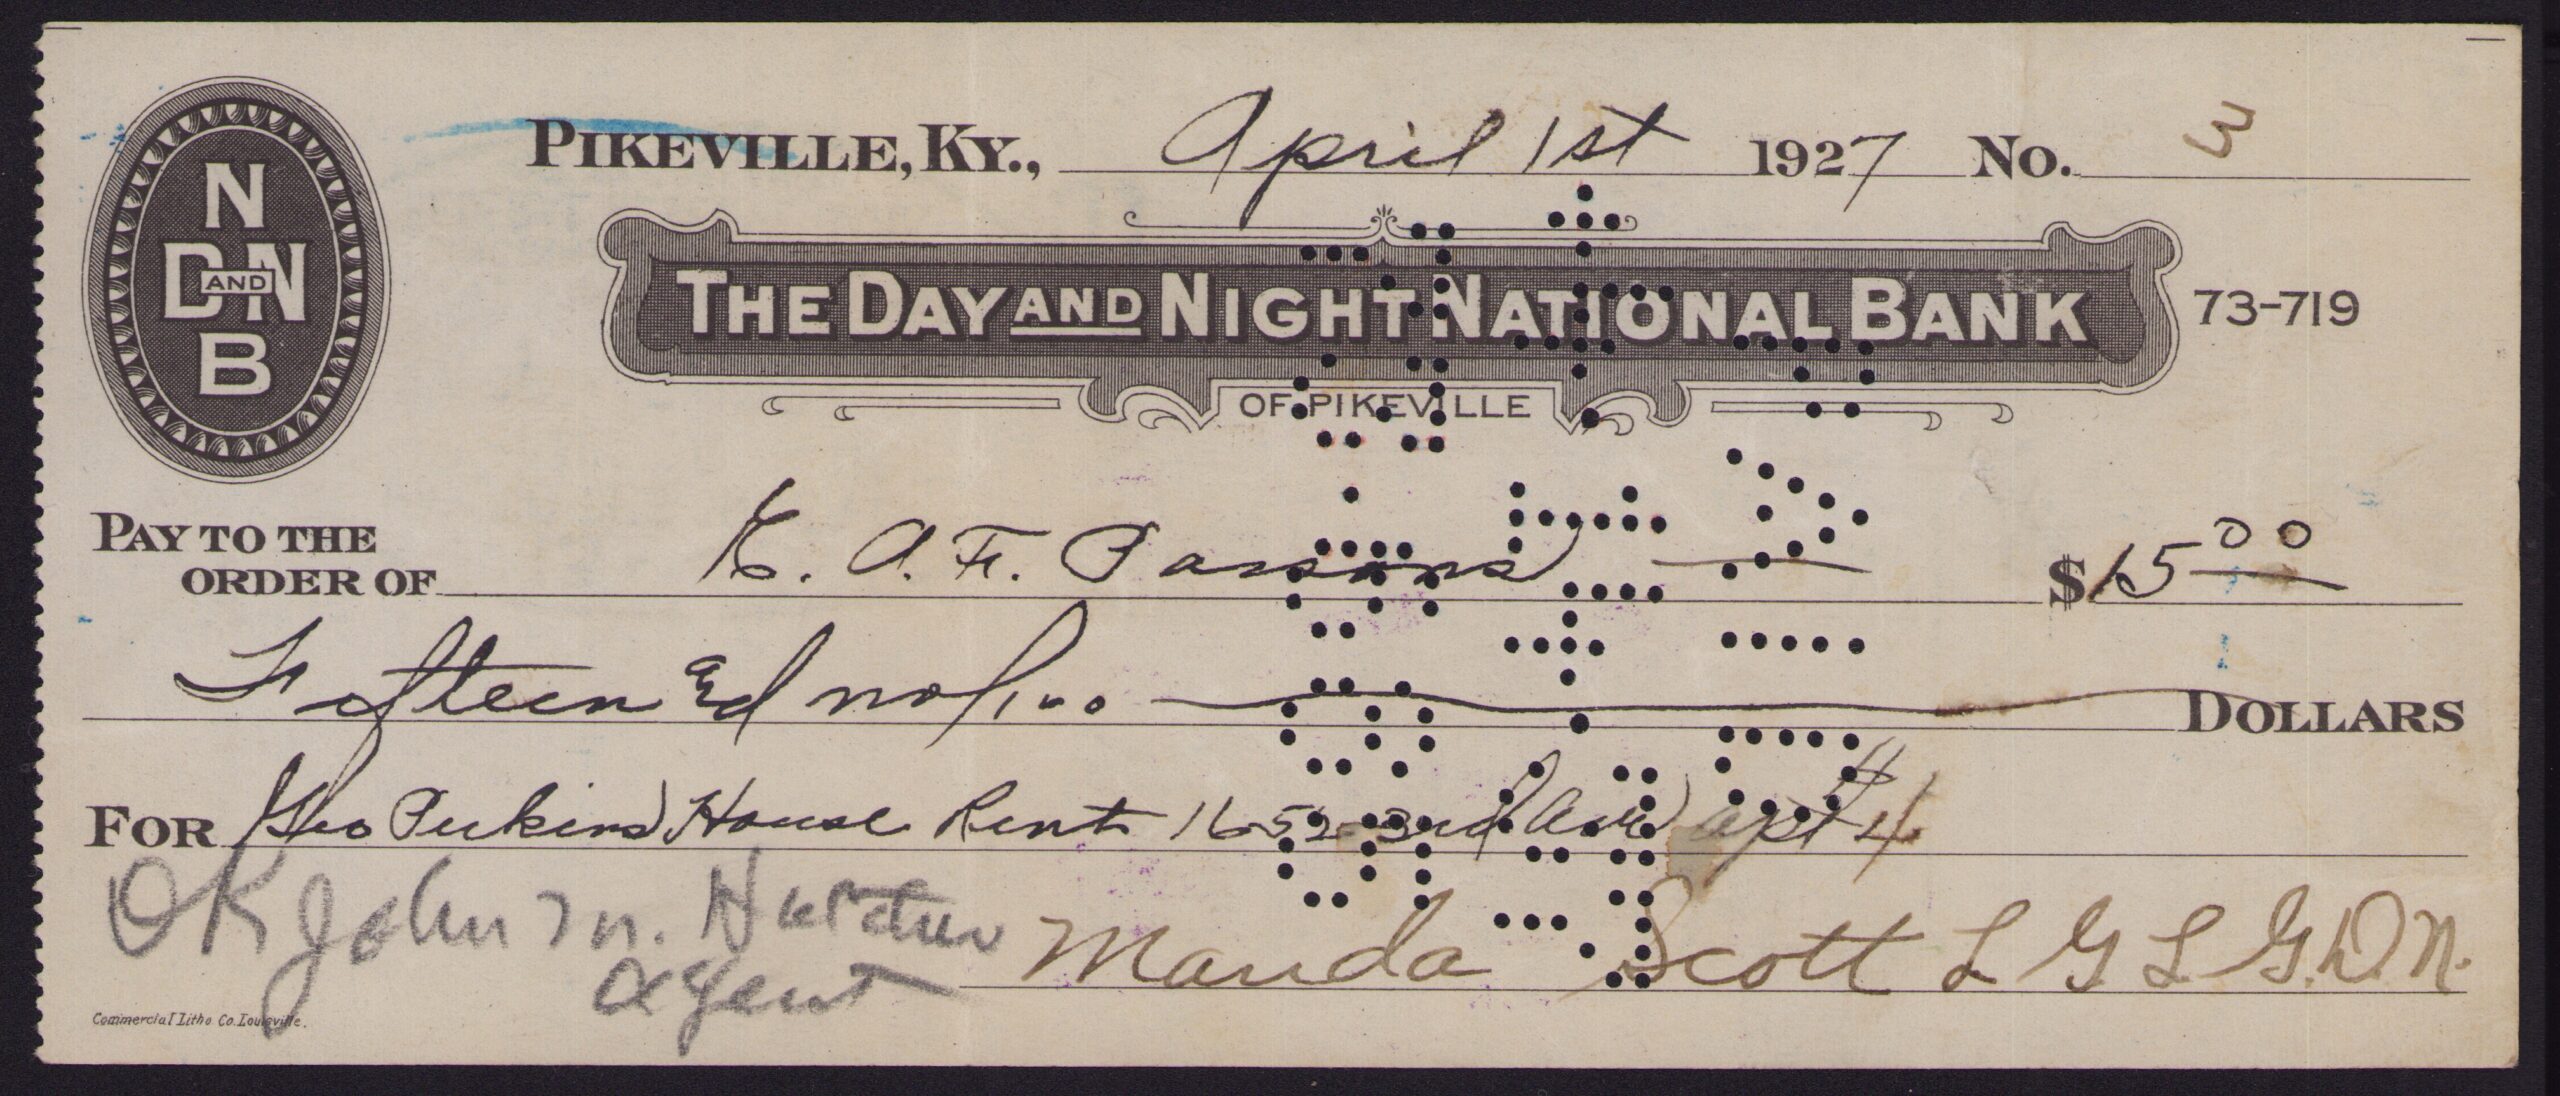 N
D AND N
B
PIKEVILLE, KY., April 1st 1927 No. 3
THE DAY AND NIGHT NATIONAL BANK 73-719
OF PIKEVILLE
PAY TO THE
ORDER OF K. A. F. Parsons $15 00
Fifteen and no/100 DOLLARS
FOR Geo Perkins House Rent 1652 3rd Ave apt 4
OK John M.
Agent
Manda Scott L G L G. D. N.
Commercial Litho Co. Louisville.